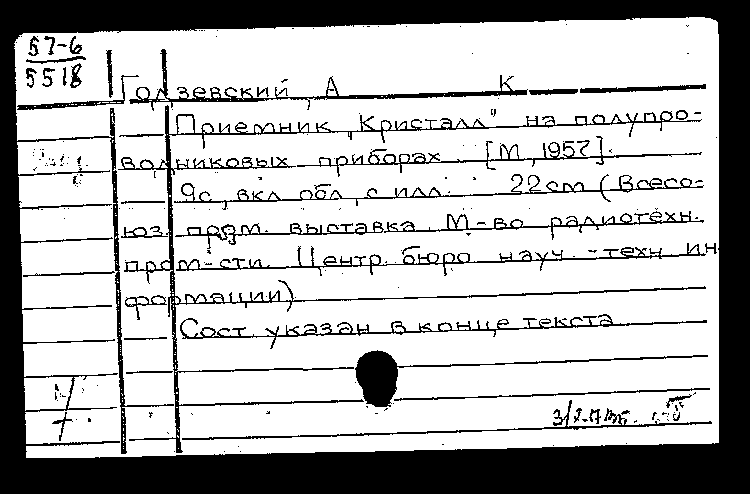 57-6
5518
Годзевский, А К
Приемник „Кристалл" на полупро-
водниковых приборах. [М., 1957].
9с., вкл. обл., с илл. 22см (Всесо-
юз. пром. выставка. М-во радиотехн.
пром-сти. Центр. бюро науч.-техн. ин-
формации)
Сост. указан в конце текста